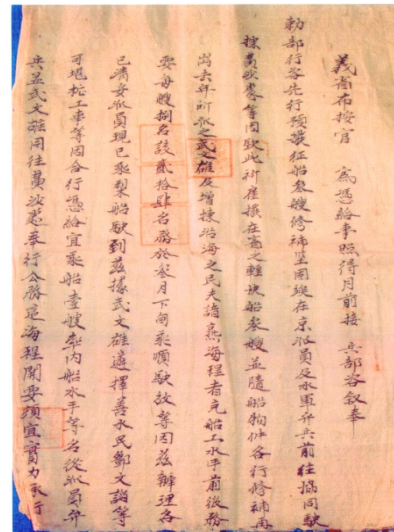 義省布按官 為憑給事照得月前接 兵部咨敘奉
勅部行咨先行預撥征船叁艘修補堅固竢在京派員及水軍弁兵前往協同駛
往黃沙處等因欽此祈雇撥在省之輕快船叁艘並隨船物件各行修補再
去年所派之武文雄及增揀沿海之民夫諳熟海程者充船工水手前後務
要每艘捌名該貳拾肆名務於叁月下旬乘順駛放等因茲辦理各
已清妥派員現已乘駕船駛到茲據武文雄遴擇善水民鄧文諳等
可堪梢工事等因合行憑給宜乘船壹艘率內船水手等名從派員弁
兵並武文雄同往黃沙處奉行公務這海程關要須宜實力承行